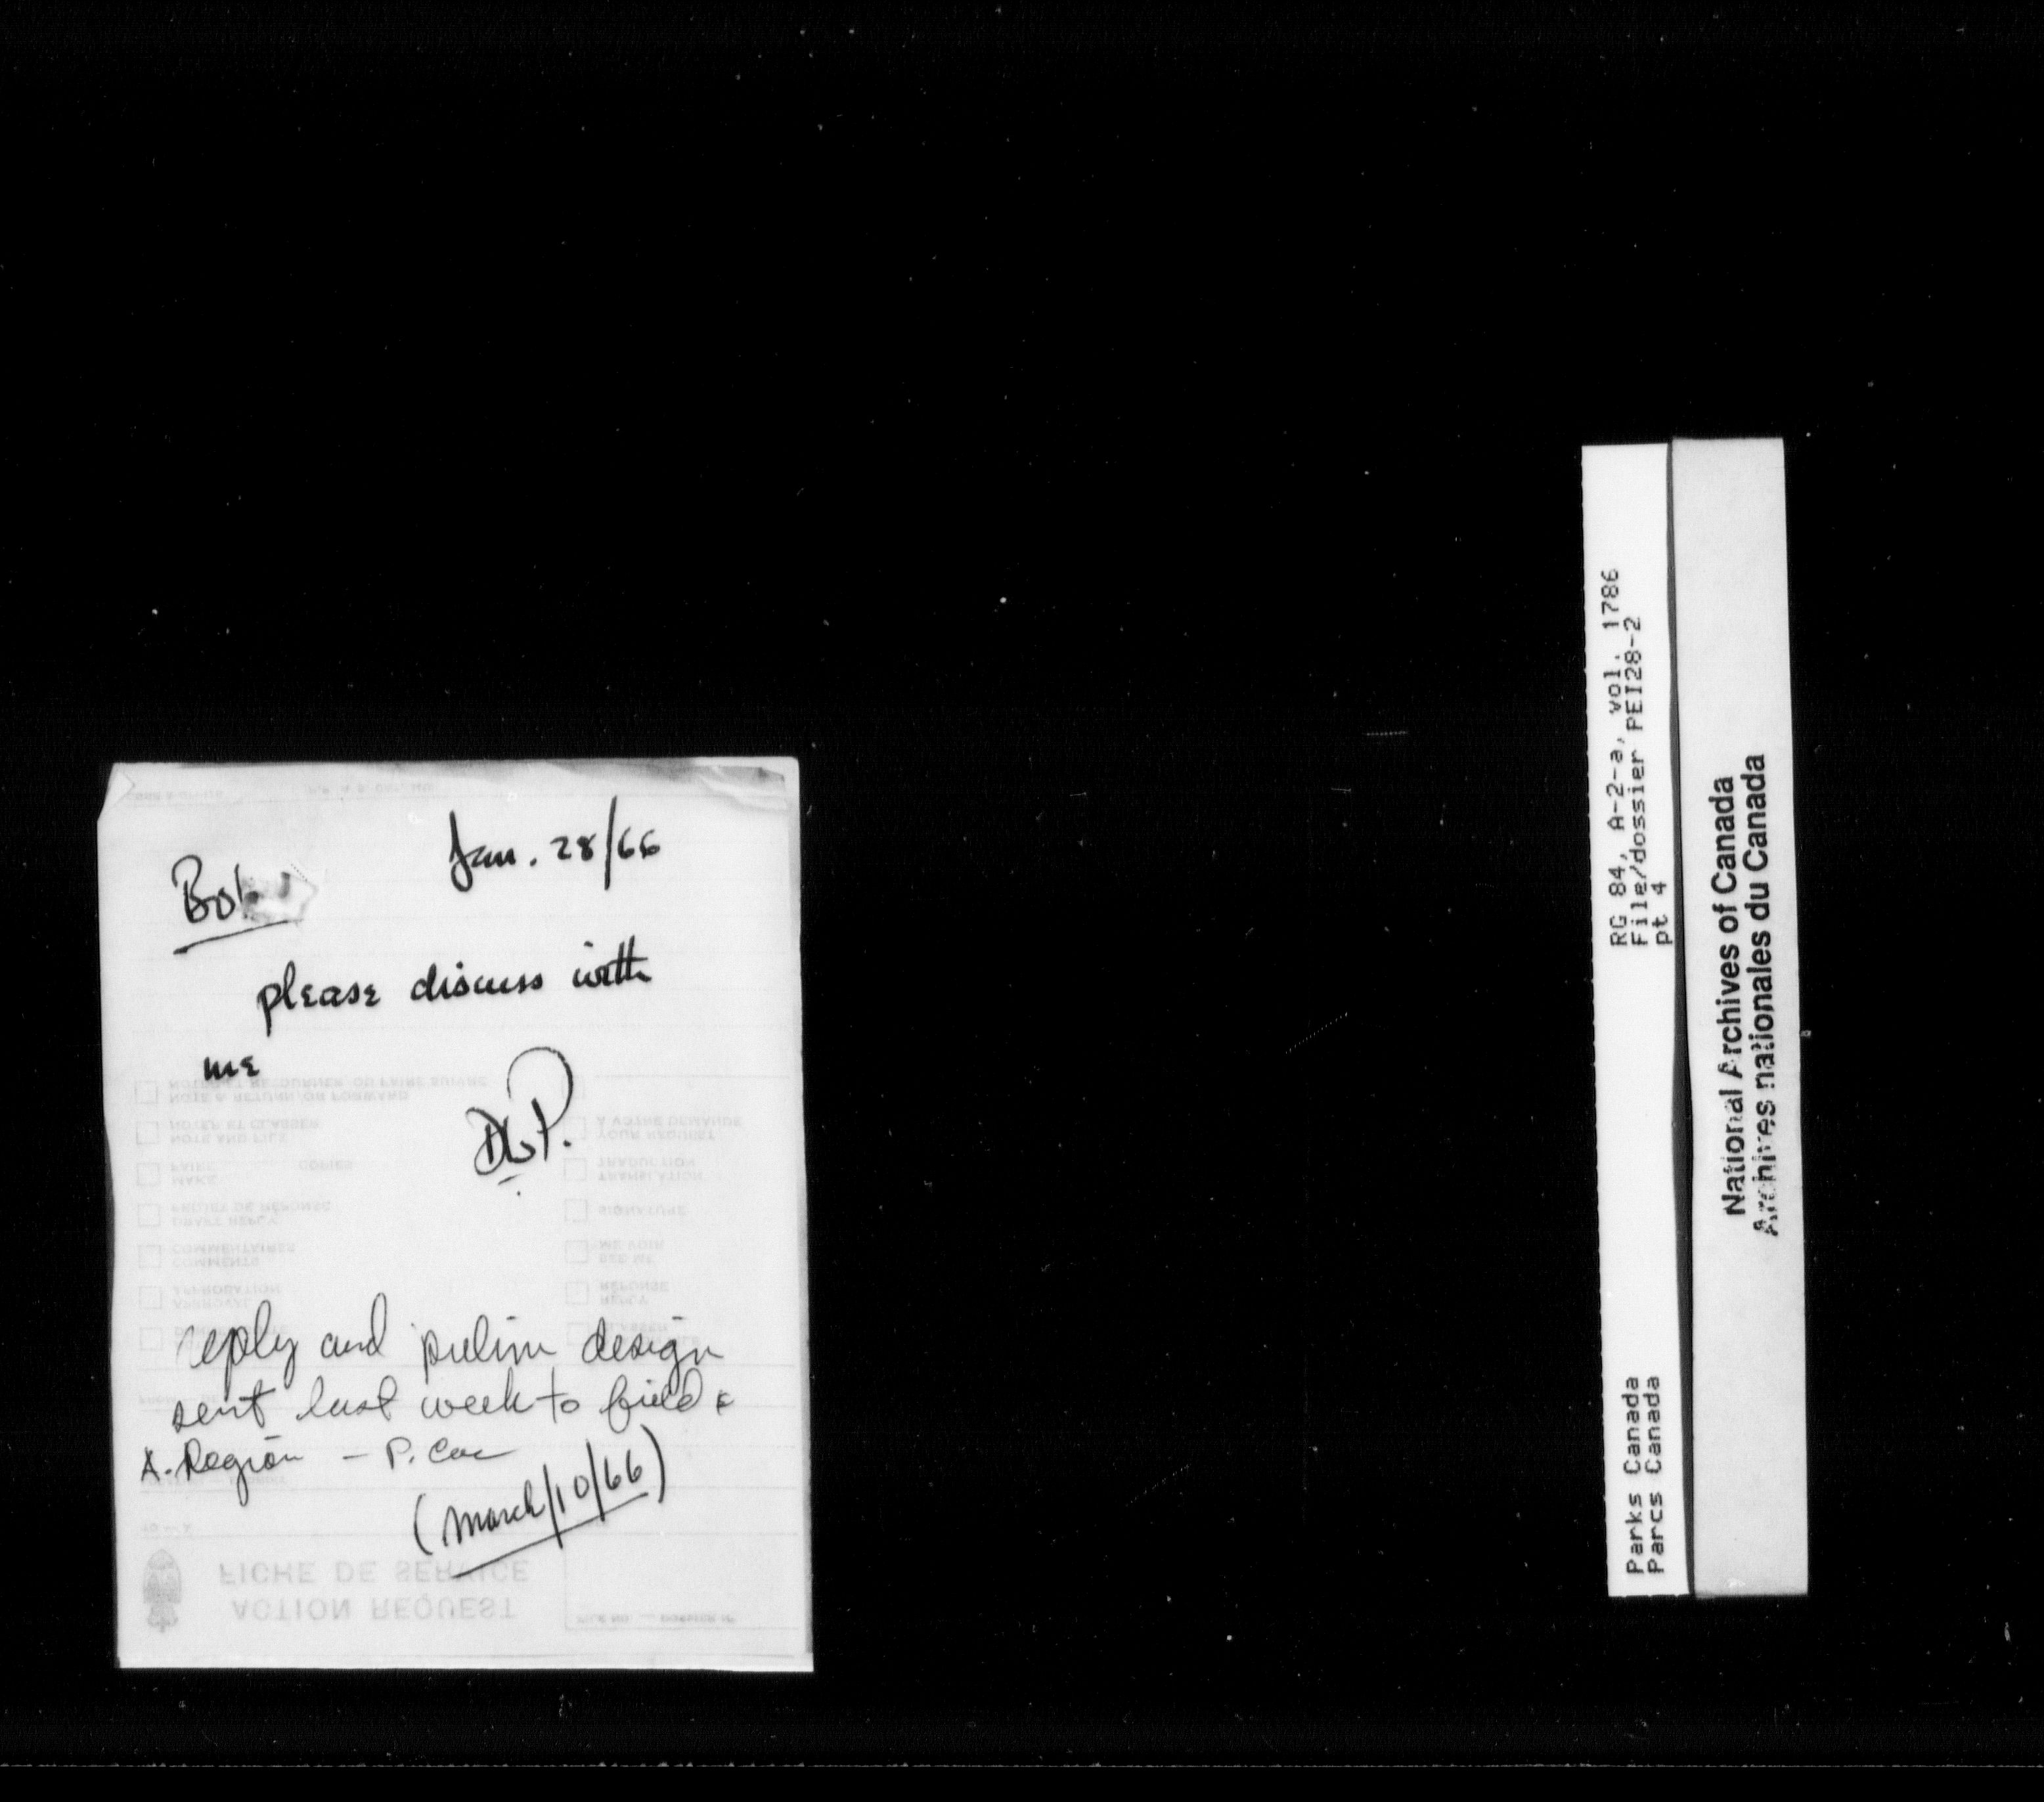 Jan. 28/66
Bob
please discuss with
me
reply and prelim design
sent last week to field &
A. Region — P. Cox
(March/10/66)
NOTER ET RETOURNER, OU FAIRE SUIVRE
NOTE & RETURN/OR FORWARD
NOTER ET CLASSER
NOTE AND FILE
FAIRE COPIES
MAKE
PROJET DE RÉPONSE
DRAFT REPLY
COMMENTAIRES
COMMENTS
APPROBATION
APPROVAL
À VOTRE DEMANDE
YOUR REQUEST
TRADUCTION
TRANSLATION
SIGNATURE
ME VOIR
SEE ME
RÉPONSE
REPLY
CLASSER
FICHE DE SERVICE
ACTION REQUEST
FILE NO. — DOSSIER Nº
RG 84, A-2-a, vol. 1786
File/dossier PEI28-2
pt 4
Parks Canada
Parcs Canada
National Archives of Canada
Archives nationales du Canada